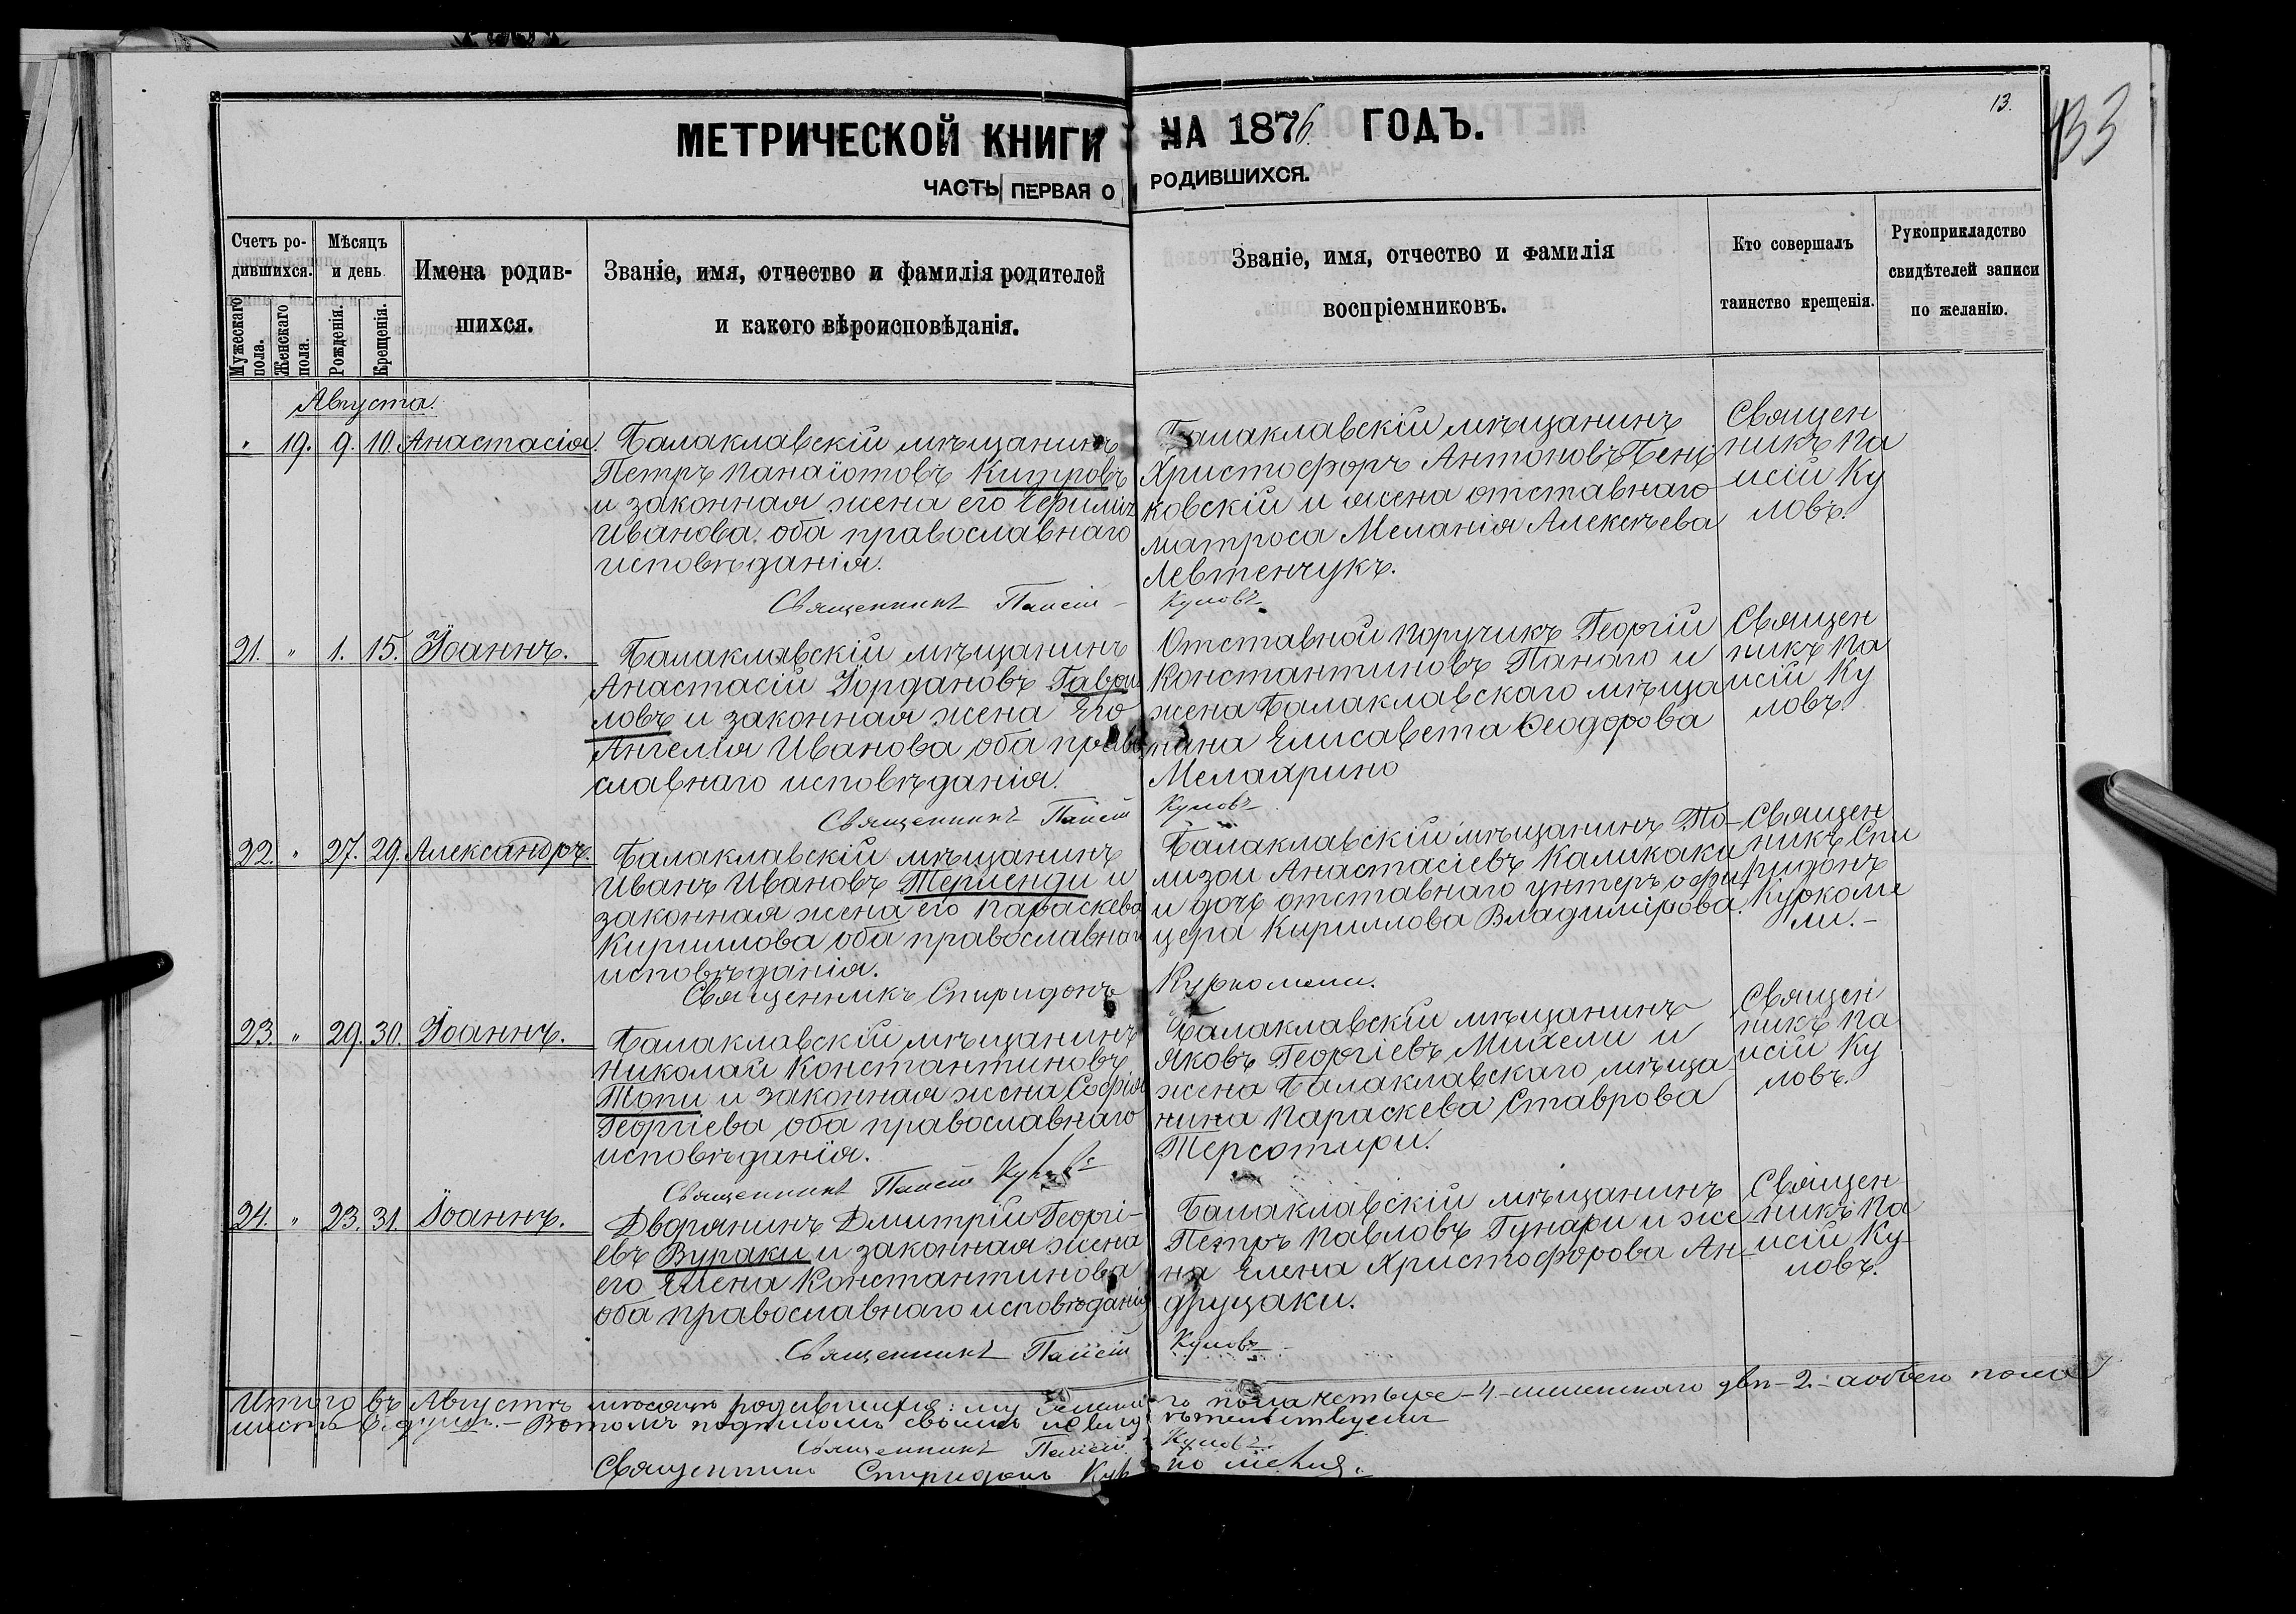 13.
133
МЕТРИЧЕСКОЙ КНИГИ НА 1876 ГОДЪ.
ЧАСТЬ ПЕРВАЯ О РОДИВШИХСЯ.
Счетъ ро-
дившихся.
Мужескаго
пола.
Женскаго
пола.
Мѣсяцъ
и день
Рожденія.
Крещенія.
Имена родив-
шихся.
Званіе, имя, отчество и фамилія родителей
и какого вѣроисповѣданія.
Званіе, имя, отчество и фамилія
воспріемниковъ.
Кто совершалъ
таинство крещенія.
Рукоприкладство
свидѣтелей записи
по желанію.
Августа.
" 19. 9. 10. Анастасія.
Балаклавскій мѣщанинъ
Петръ Панаіотовъ Кипровъ
и законная жена его
Иванова, оба православнаго
исповѣданія.
Балаклавскій мѣщанинъ
Христофоръ Антоновъ Бени
ковскій и жена отставнаго
матроса Меланія Алексѣева
Левтенчукъ.
Священ
никъ Па
исій Ку
ловъ.
Священникъ Паисій Куловъ
21. " 1. 15. Іоаннъ.
Балаклавскій мѣщанинъ
Анастасій Іордановъ Гаври
ловъ и законная жена Его
Ангелія Иванова, оба право
славнаго исповѣданія.
Отставной Поручикъ Георгій
Константиновъ Панаго и
жена Балаклавскаго мѣща
нина Елисавета Ѳеодорова
Мелахрино
Священ
никъ Па
исій Ку
ловъ
Священникъ Паисій Куловъ
22. " 27. 29. Александръ.
Балаклавскій мѣщанинъ
Иванъ Ивановъ Терленди и
законная жена его Параскева
Кириллова оба православнаго
исповѣданія.
Балаклавскій мѣщанинъ То-
лизой Анастасіевъ Каликаки
и дочь отставнаго унтеръ офи
цера Кириллова Владимірова.
Священ
никъ Спи
ридонъ
Куркоме
ли.-
Священникъ Спиридонъ Куркомели.
23. " 29. 30. Іоаннъ.
Балаклавскій мѣщанинъ
Николай Константиновъ
Топи и законная жена Софія
Георгіева, оба православнаго
исповѣданія.
Балаклавскій мѣщанинъ
Яковъ Георгіевъ Михели и
жена Балаклавскаго мѣща
нина Параскева Ставрова
Терсотири.
Священ
никъ Па
исій Ку
ловъ.
Священникъ Паисій Куловъ
24. " 23. 31. Іоаннъ.
Дворянинъ Дмитрій Георгі-
евъ Вураки и законная жена
его Елена Константинова
оба православнаго исповѣданія
Балаклавскій мѣщанинъ
Петръ Павловъ Гунари и же
на Елена Христофорова Ан-
друцаки.
Священ
никъ Па
исій Ку-
ловъ.
Священникъ Паисій Куловъ
Итого въ Августѣ мѣсяцѣ родившихся: мужескаго пола четыре -4- женскаго двѣ -2- а обоего пола
шесть 6. душъ.- Въ томъ подписомъ своимъ свидѣтельствуемъ
Священникъ Паисій Куловъ.
Священникъ Спиридонъ Куркомели.